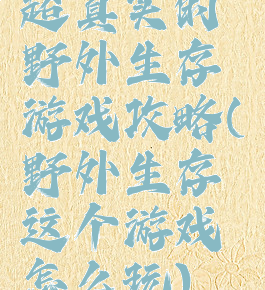 超真实的
野外生存
游戏攻略(
野外生存
这个游戏
怎么玩)